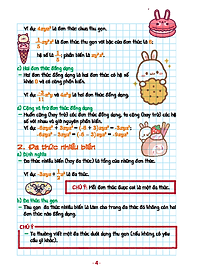 Ví dụ: 4xyz² là đơn thức thu gọn.
là đơn thức thu gọn với bậc của đơn thức là
hệ số là
c) Hai đơn thức đồng dạng
- Hai đơn thức đồng dạng là hai đơn thức có hệ số khác 0 và có cùng phần biến.
Ví dụ: là hai đơn thức đồng dạng.
d) Cộng và trừ đơn thức đồng dạng
- Muốn cộng (hay trừ) các đơn thức đồng dạng, ta cộng (hay trừ) các hệ số với nhau và giữ nguyên phần biến.
Ví dụ:
2. Đa thức nhiều biến
a) Định nghĩa
- Đa thức nhiều biến (hay đa thức) là tổng của những đơn thức.
Ví dụ: là đa thức.
CHÚ Ý: Mỗi đơn thức được coi là một đa thức.
b) Đa thức thu gọn
- Thu gọn đa thức nhiều biến là làm cho trong đa thức đó không còn hai đơn thức nào đồng dạng.
CHÚ Ý:
- Ta thường viết một đa thức dưới dạng thu gọn (nếu không có yêu cầu gì khác).
- 4 -